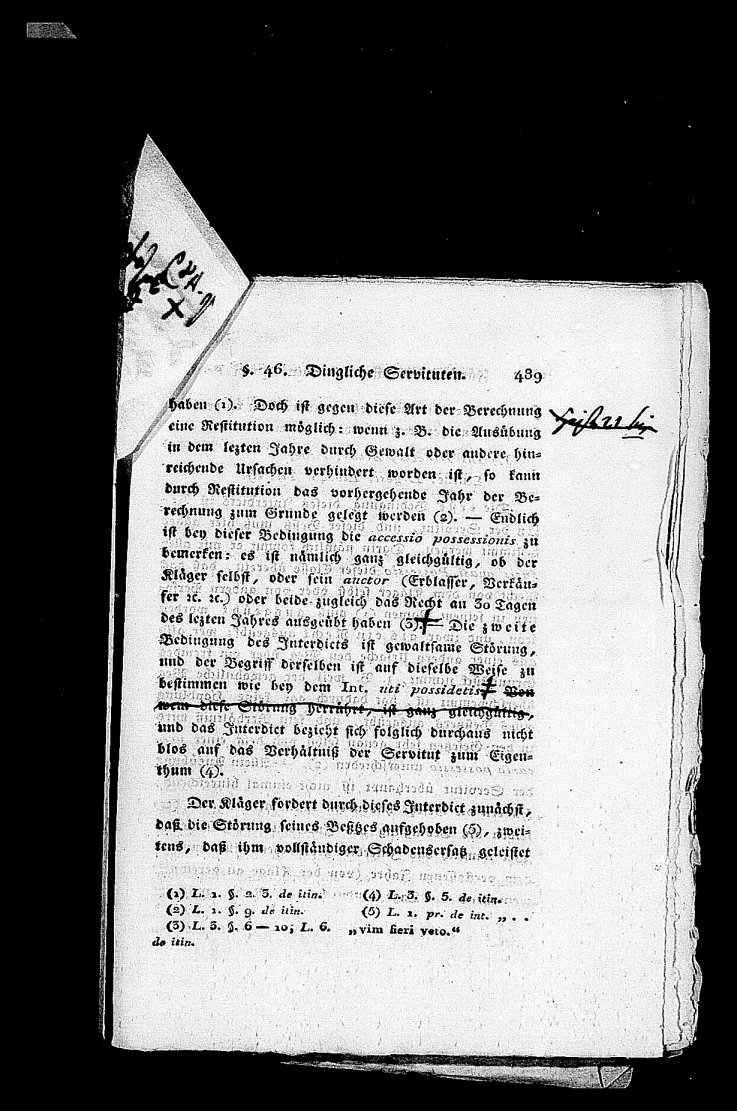 §. 46. Dingliche Servituten. 489
haben (1). Doch ist gegen diese Art der Berechnung
eine Restitution möglich: wenn z. B. die Ausübung
in dem lezten Jahre durch Gewalt oder andere hin-
reichende Ursachen verhindert worden ist, so kann
durch Restitution das vorhergehende Jahr der Be-
rechnung zum Grunde gelegt werden (2). — Endlich
ist bey dieser Bedingung die accessio possessionis zu
bemerken: es ist nämlich ganz gleichgültig, ob der
Kläger selbst, oder sein auctor (Erblasser, Verkäu-
fer ꝛc. ꝛc.) oder beide zugleich das Recht an 30 Tagen
des lezten Jahres ausgeübt haben (3). — Die zweite
Bedingung des Interdicts ist gewaltsame Störung,
und der Begriff derselben ist auf dieselbe Weise zu
bestimmen wie bey dem Int. uti possidetis. Von
wem diese Störung herrührt, ist ganz gleichgültig,
und das Interdict bezieht sich folglich durchaus nicht
blos auf das Verhältniß der Servitut zum Eigen-
thum (4).
Der Kläger fordert durch dieses Interdict zunächst,
daß die Störung seines Besitzes aufgehoben (5), zwei-
tens, daß ihm vollständiger Schadensersatz geleistet
(1) L. 1. §. 2. 3. de itin.
(2) L. 1. §. 9. de itin.
(3) L. 3. §. 6 — 10; L. 6.
de itin.
(4) L. 3. §. 5. de itin.
(5) L. 1. pr. de int. „ . .
„vim fieri veto.“